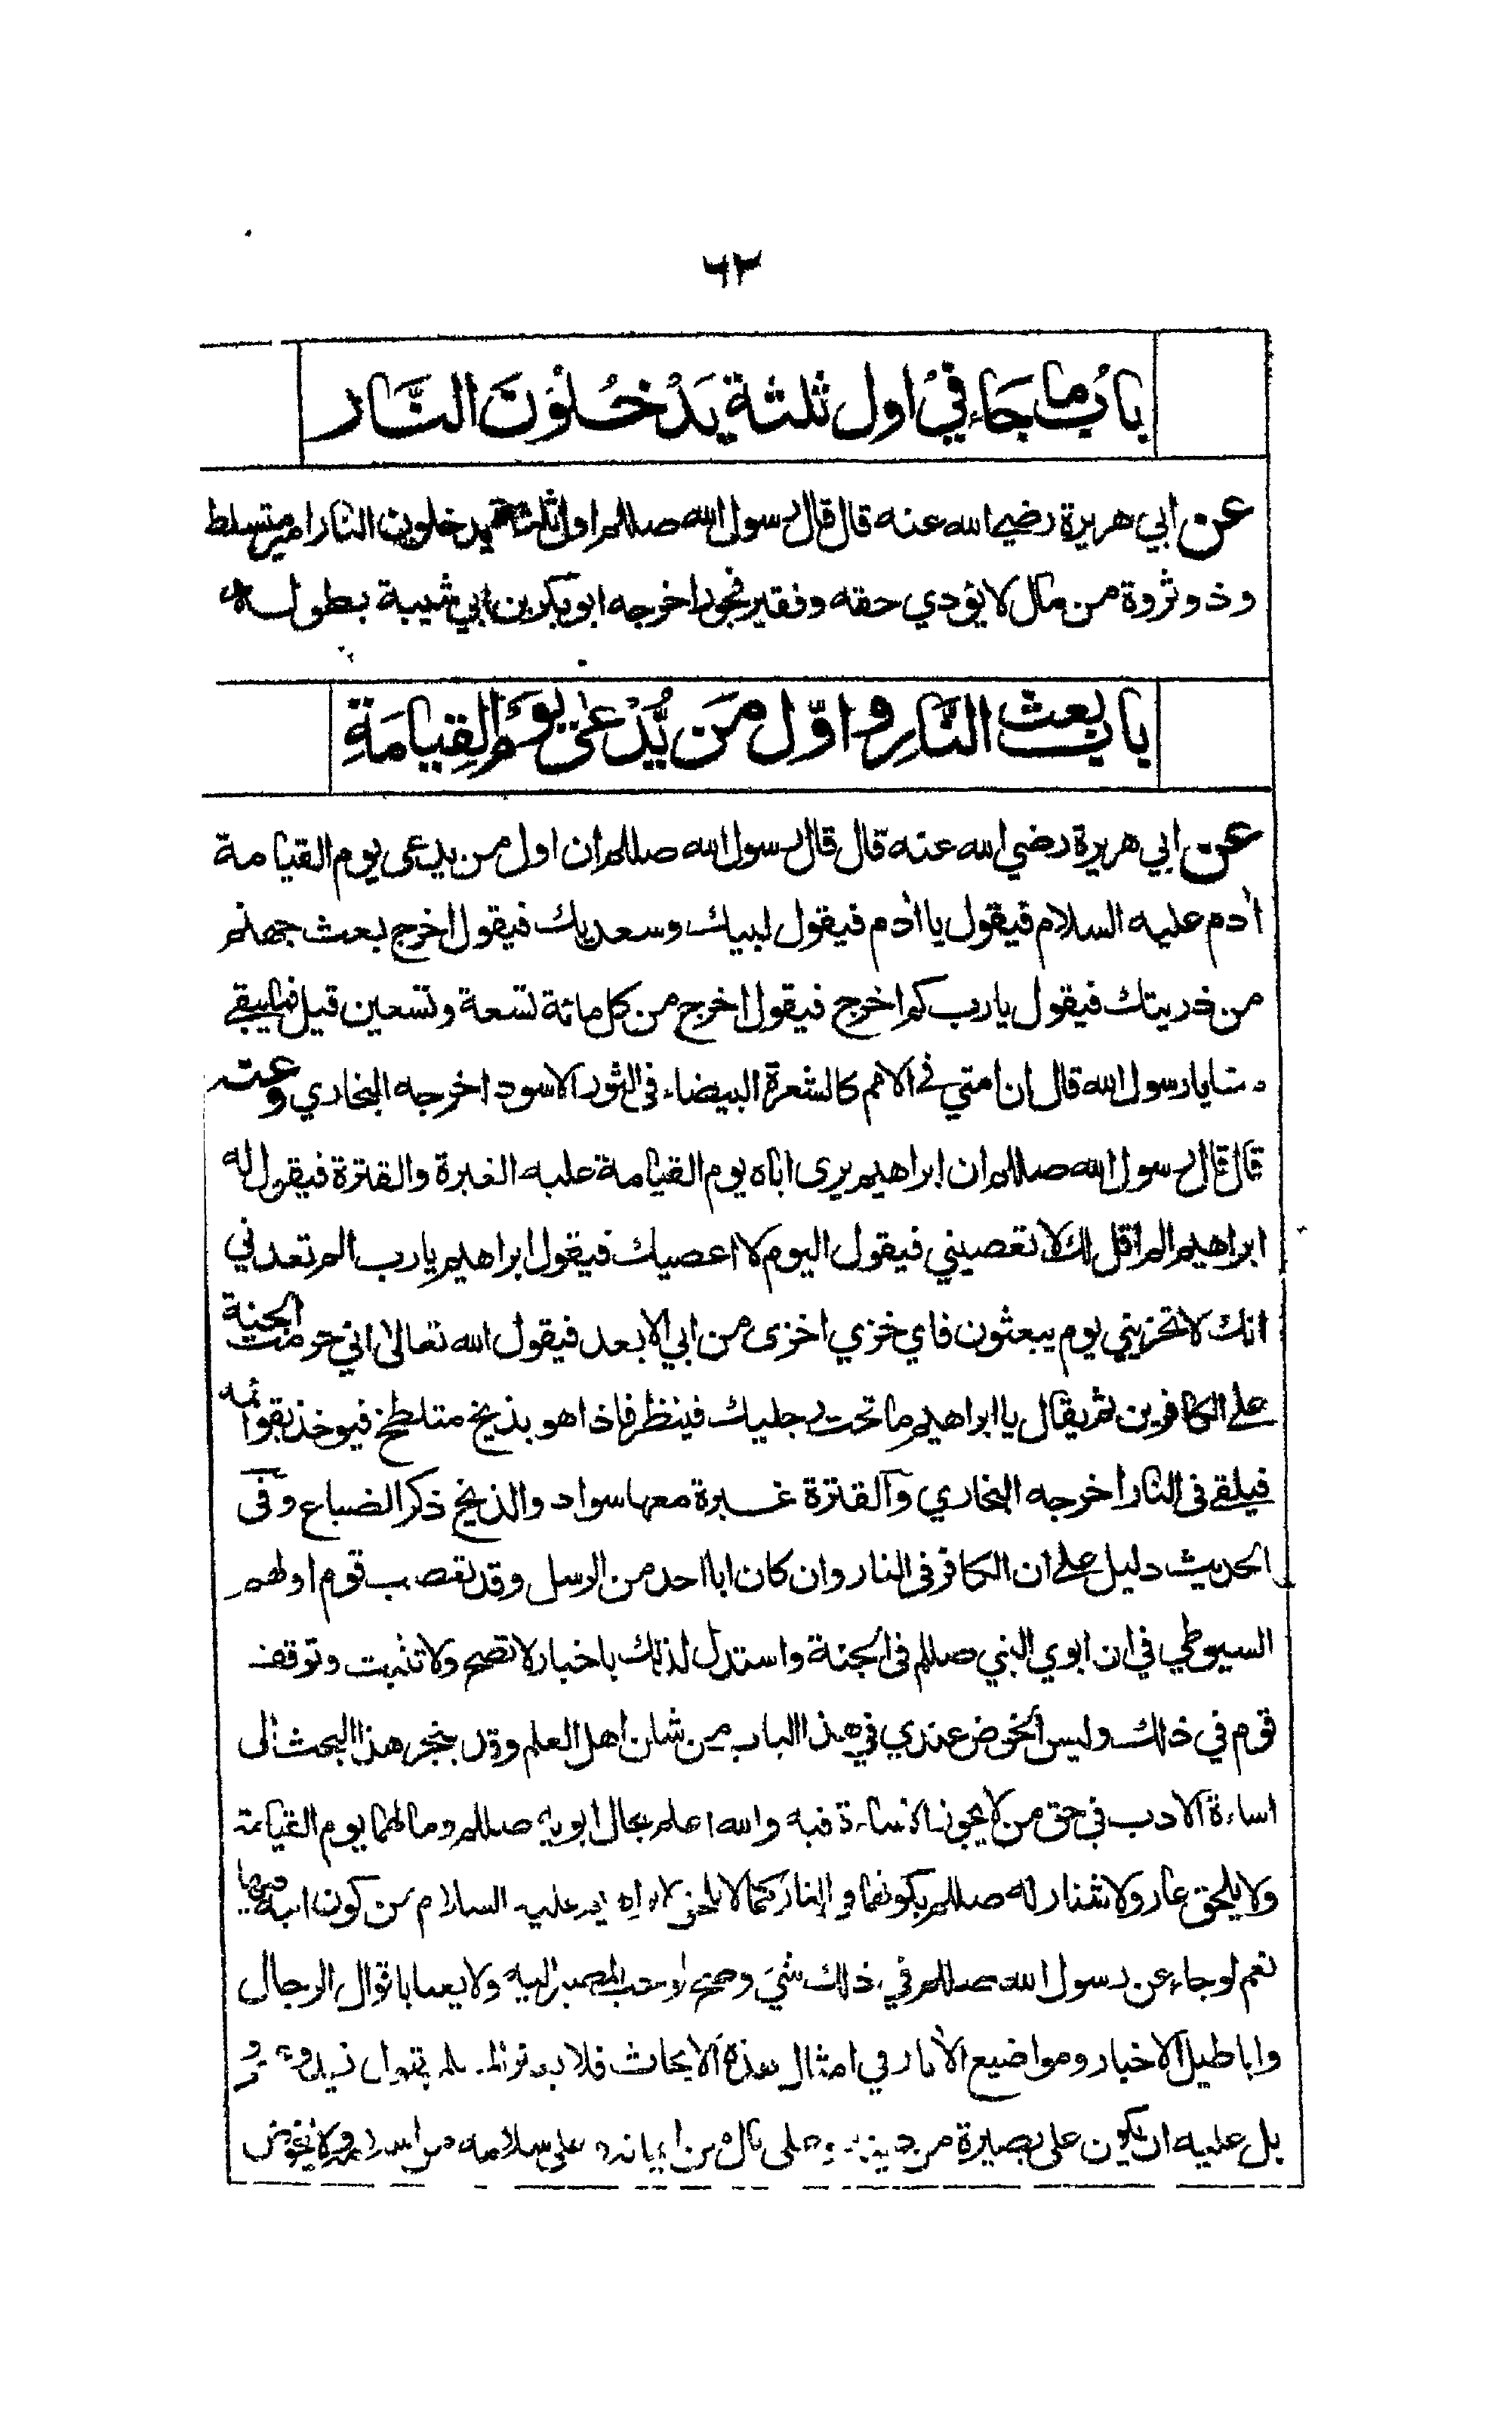 ٦٢
باب ما جاء في اول ثلثة يدخلون النار
عن ابي هريرة رضي الله عنه قال قال رسول الله صللم اول ثلثة يدخلون النار امير متسلط
وذو ثروة من مال لا يؤدي حقه وفقير فجور اخرجه ابو بكر بن ابي شيبة بطوله
باب بعث النار واول من يدعى يوم القيامة
عن ابي هريرة رضي الله عنه قال قال رسول الله صللم ان اول من يدعى يوم القيامة
أدم عليه السلام فيقول يا أدم فيقول لبيك وسعديك فيقول اخرج بعث جهنم
من ذريتك فيقول يا رب كم اخرج فيقول اخرج من كل مائة تسعة وتسعين قيل فما يبقى
منا يا رسول الله قال ان امتي في الامم كالشعرة البيضاء في الثور الاسود اخرجه البخاري وعنه
قال قال رسول الله صللم ان ابراهيم يرى اباه يوم القيامة عليه الغبرة والقترة فيقول له
ابراهيم الم اقل لك لا تعصيني فيقول اليوم لا اعصيك فيقول ابراهيم يا رب الم تعدني
انك لا تخزيني يوم يبعثون فاي خزي اخزى من ابي الابعد فيقول الله تعالى اني حرمت الجنة
على الكافرين ثم يقال يا ابراهيم ما تحت رجليك فينظر فاذا هو بذيخ متلطخ فيوخذ بقوائمه
فيلقى في النار اخرجه البخاري والقترة غبرة معها سواد والذيخ ذكر الضباع وفي
الحديث دليل على ان الكافر في النار وان كان ابا احد من الرسل وقد تعصب قوم اولهم
السيوطي في ان ابوي النبي صللم في الجنة واستدل لذلك باخبار لا تصح ولا تثبت وتوقف
قوم في ذلك وليس الخوض عندي في هذا الباب من شان اهل العلم وقد ينجر هذا البحث الى
اساءة الادب في حق من لا يجوز الاساءة فيه والله اعلم بحال ابويه صللم وما لهما يوم القيامة
ولا يلحق عار ولا شنار له صللم بكونهما في النار كما لا يلحق لابراهيم عليه السلام من كون ابيه فيها
نعم لو جاء عن رسول الله صللم في ذلك شيء وصح لوجب المصير اليه ولا يعبا باقوال الرجال
واباطيل الاخبار ومواضيع الأثار في امثال هذه الابحاث فلا
بل عليه ان يكون على بصيرة من دينه وعلى من ايمانه على سلامة من ولا يخوض